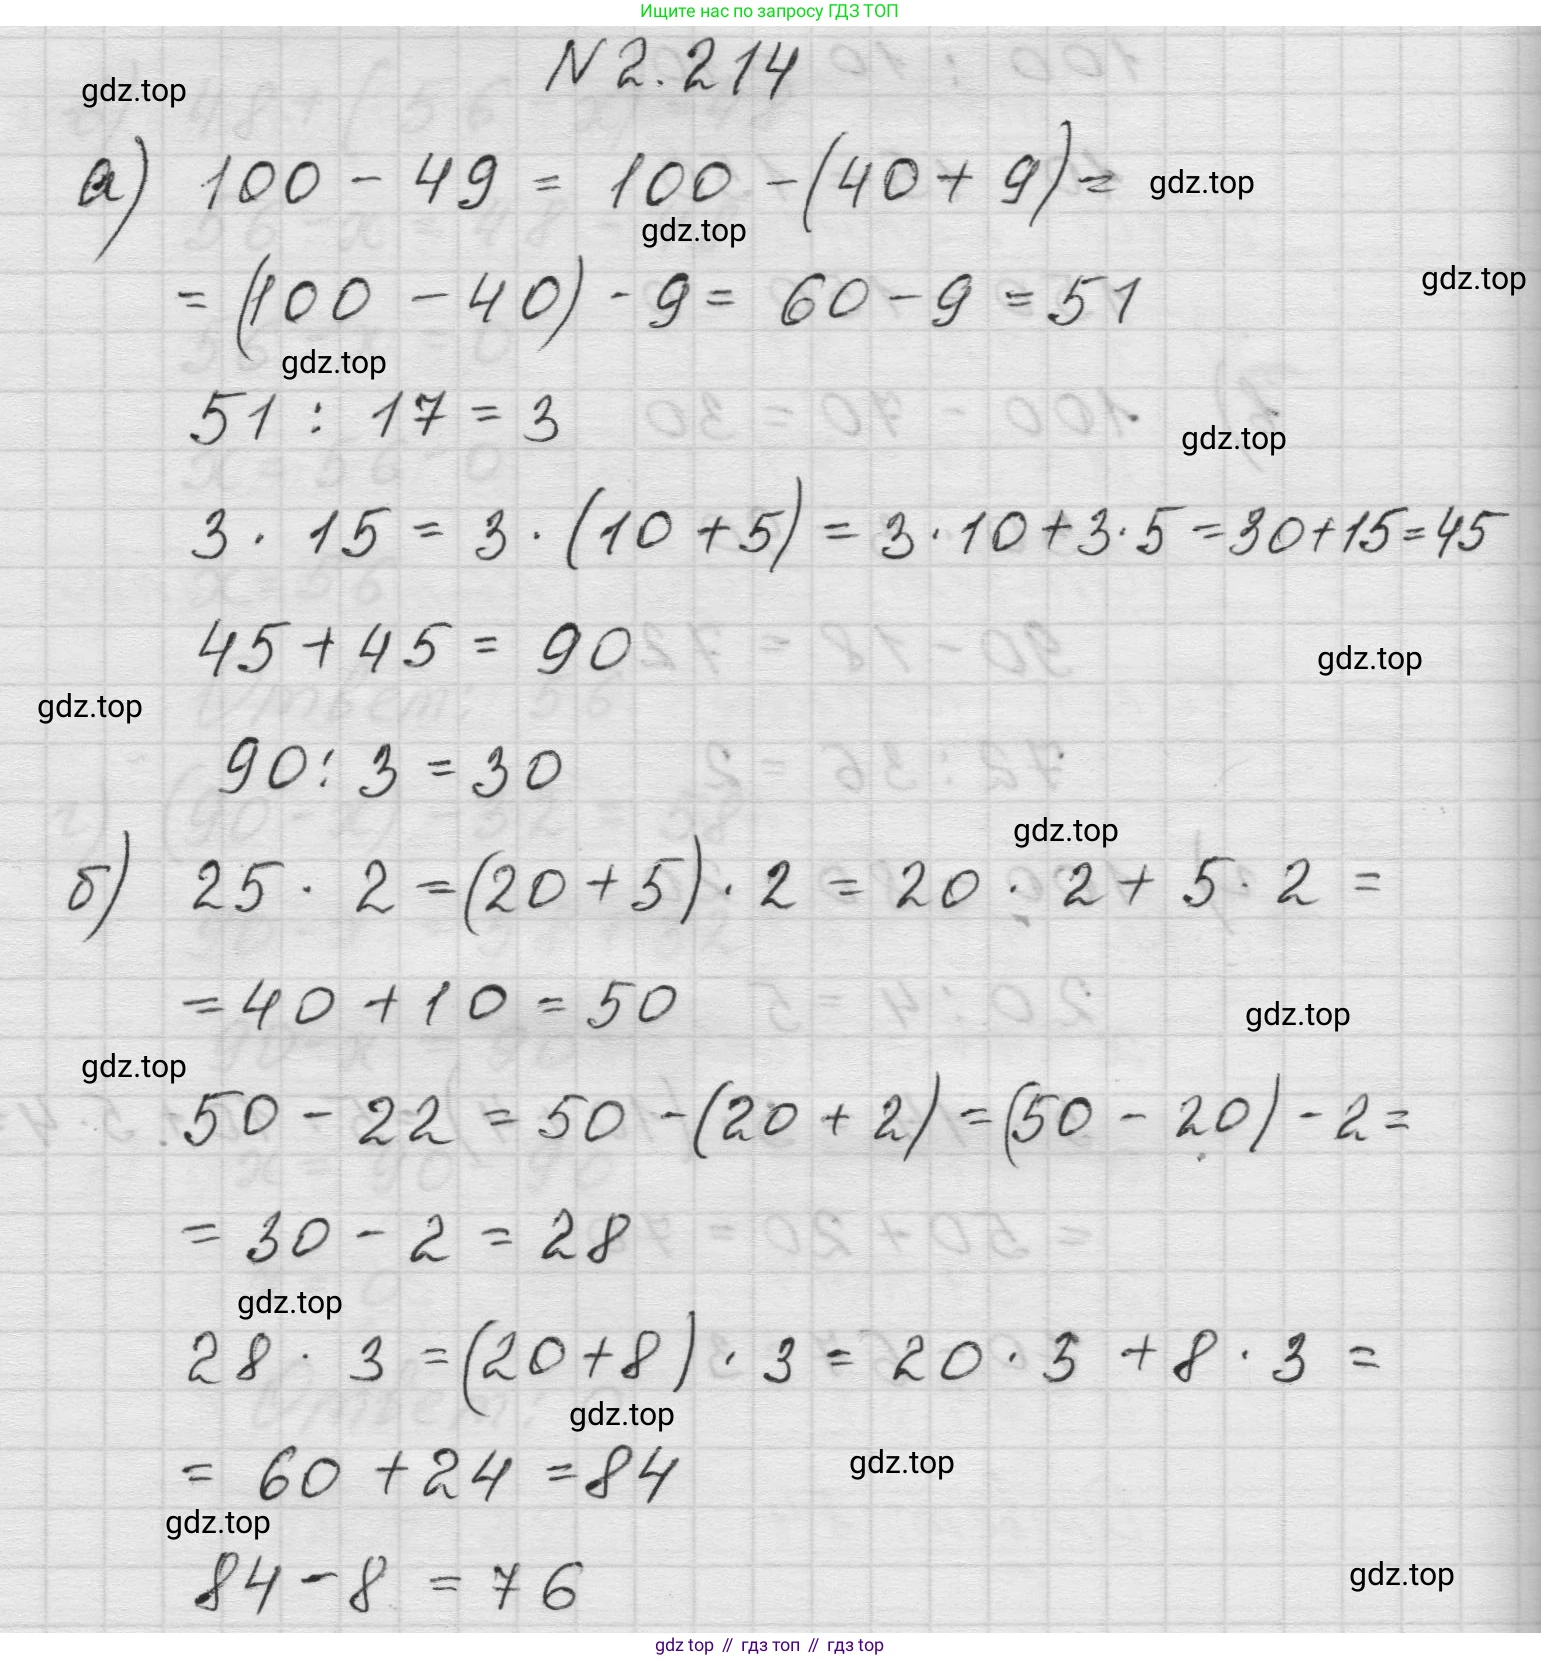 Ищите нас по запросу ГДЗ ТОП
N 2.214
gdz.top
а) 100 - 49 = 100 - (40 + 9) =
gdz.top
gdz.top
= (100 - 40) - 9 = 60 - 9 = 51
gdz.top
gdz.top
51 : 17 = 3
gdz.top
3 · 15 = 3 · (10 + 5) = 3 · 10 + 3 · 5 = 30 + 15 = 45
45 + 45 = 90
gdz.top
gdz.top
90 : 3 = 30
gdz.top
б) 25 · 2 = (20 + 5) · 2 = 20 · 2 + 5 · 2 =
= 40 + 10 = 50
gdz.top
gdz.top
50 - 22 = 50 - (20 + 2) = (50 - 20) - 2 =
= 30 - 2 = 28
gdz.top
28 · 3 = (20 + 8) · 3 = 20 · 3 + 8 · 3 =
gdz.top
= 60 + 24 = 84
gdz.top
gdz.top
84 - 8 = 76
gdz.top
gdz top // гдз топ // gdz top